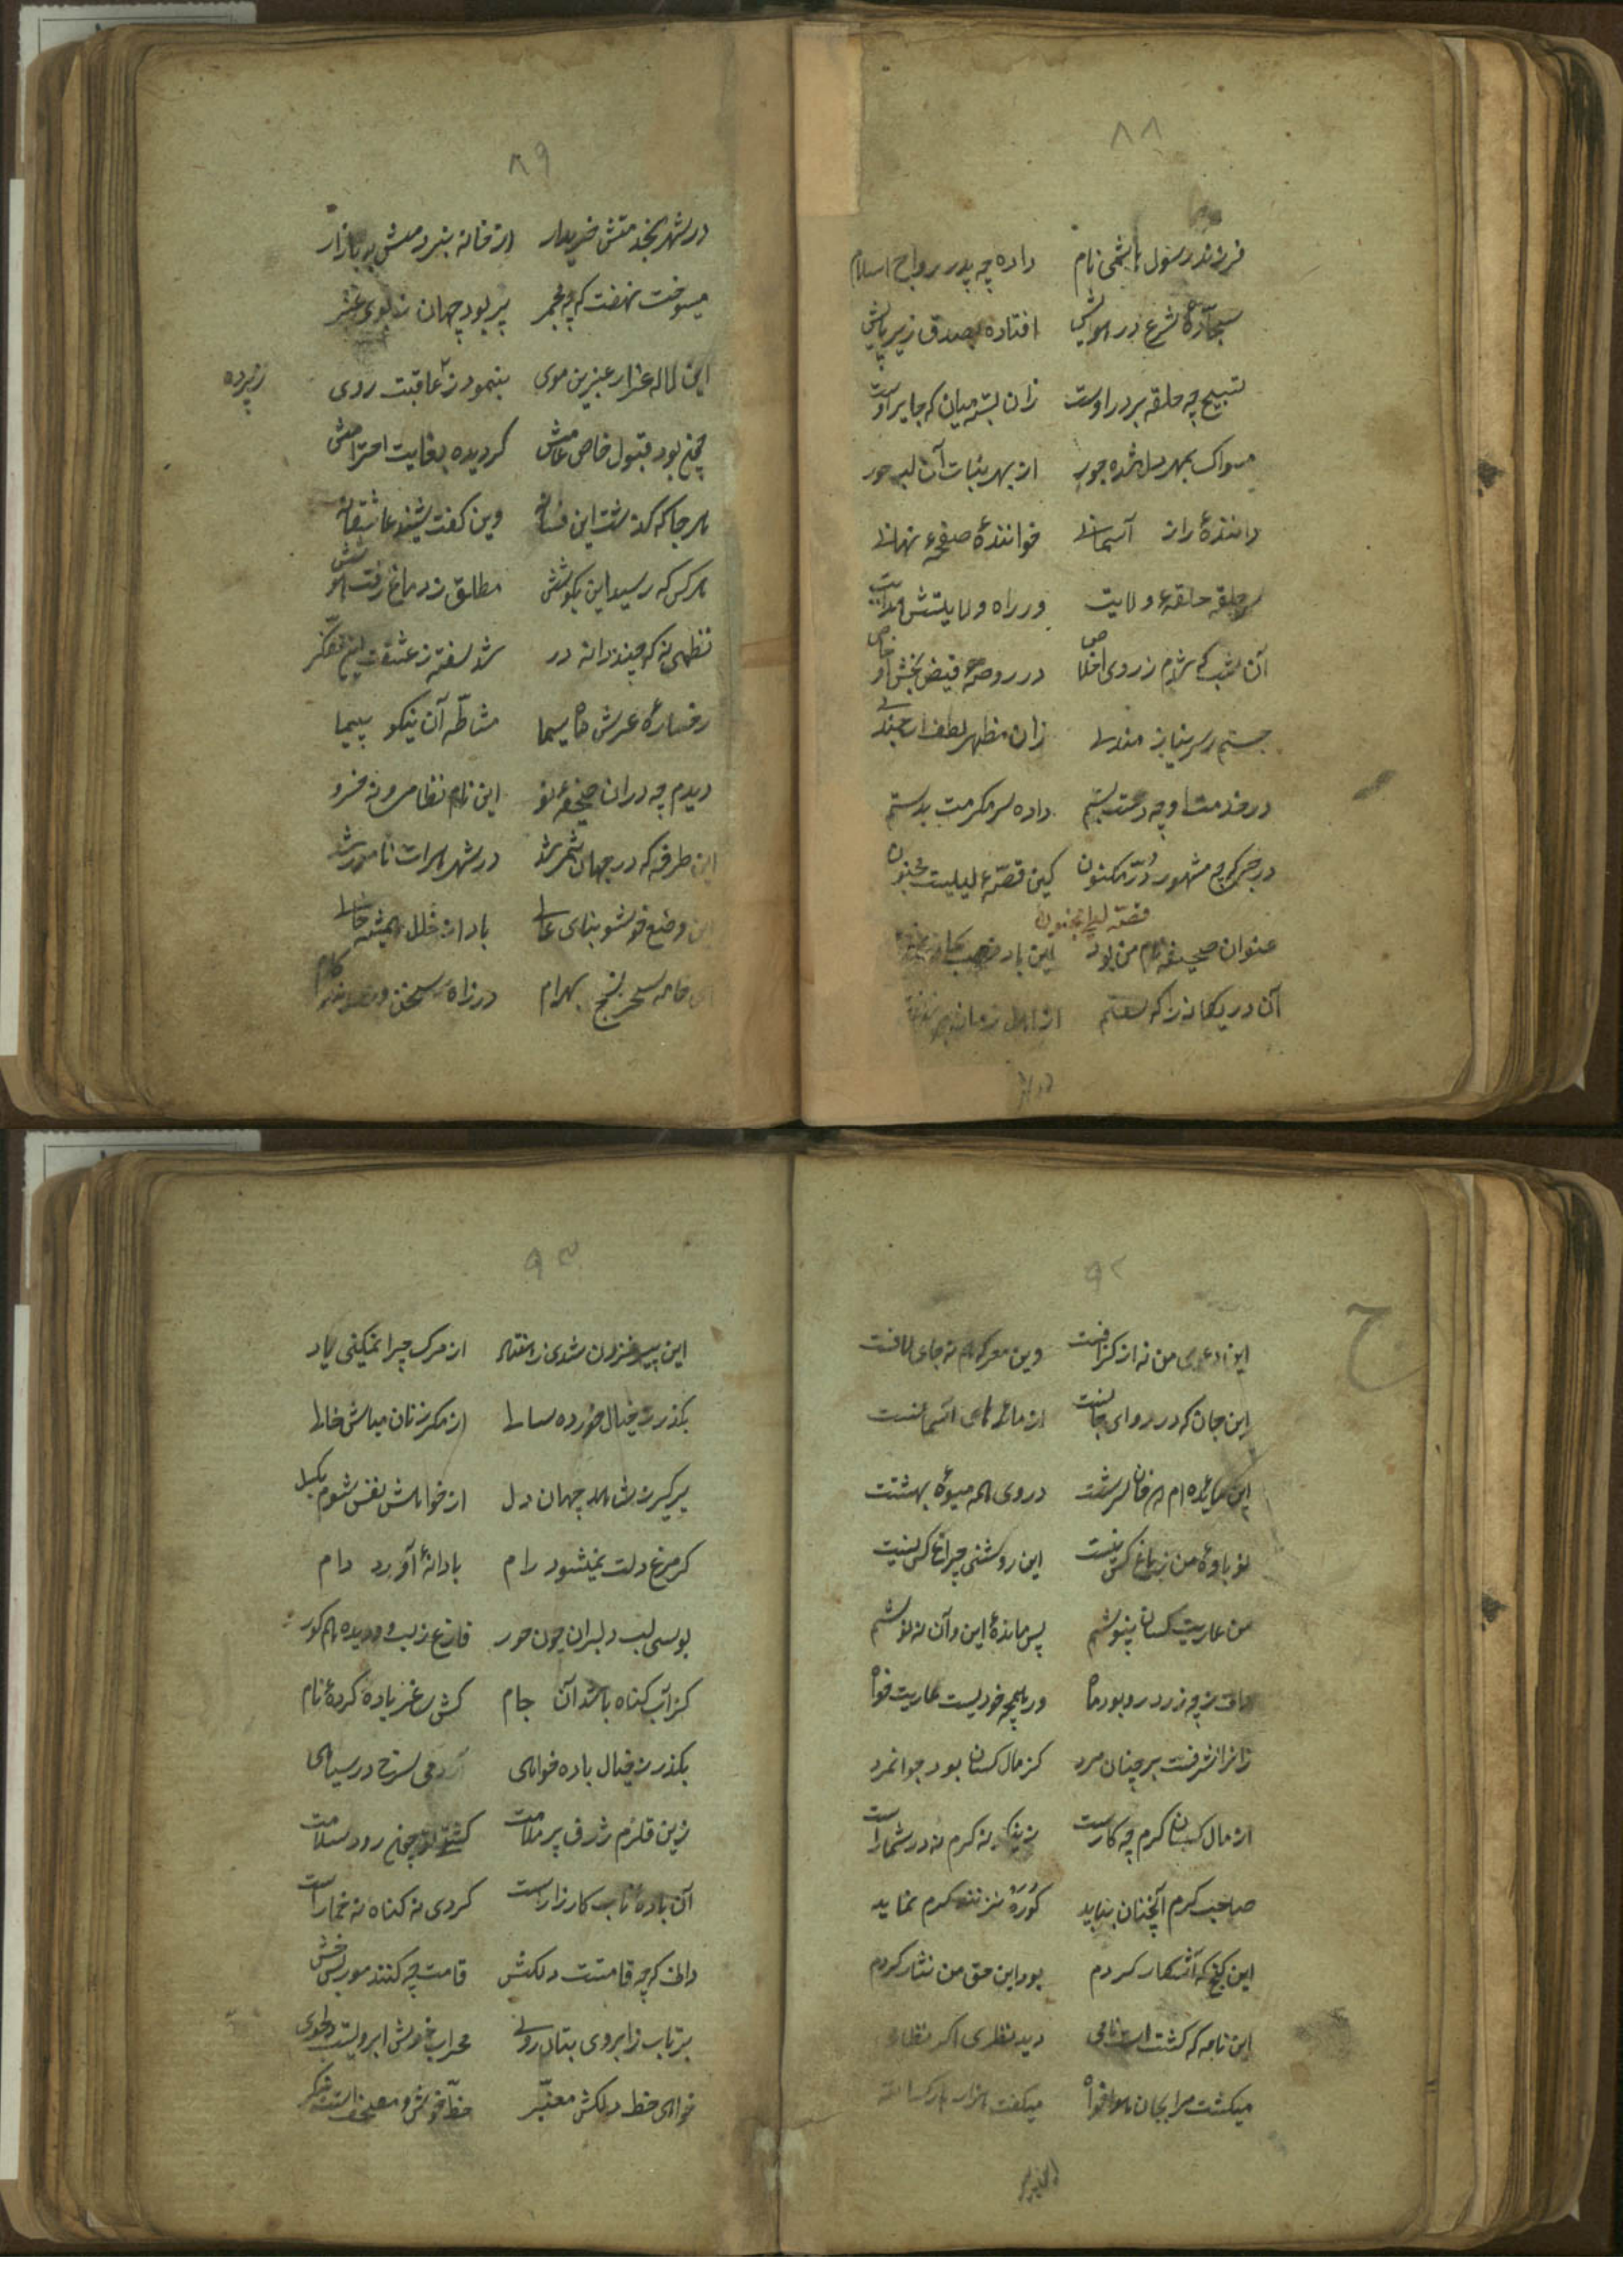 ۸۸
فرزند رسول هاشمی نام داده چه پدر رواج اسلام
سجادهٔ شرع در هوایش افتاده بصدق زیر پایش
تسبیح چه حلقه بر در اوست زان بسته میان که جابر اوست
مسواک بمهر دل شده جور از بهر نبات آن لب حور
دانندهٔ راز آسمانی خوانندهٔ صفحهٔ نهانی
سر حلقه حلقهٔ ولایت در راه ولایتش هدایت
آن شب که شدم ز روی اخلاص در روضهٔ فیض بخش او خاص
جستم ز سر نیاز مندی زان مظهر لطف
در خدمت او چه دست بستم داده سر مکرمت بدستم
درجی که چه مشهور در مکنون کین قصهٔ لیلیست مجنون
قصه لیلی مجنون
عنوان صحیفه نام من بود این باد
آن در یکانه را که سفتم از اهل زمانه
۸۹
در شهر بخدمتش خریدار از خانه بنبرد مش ببازار
میسوخت نهفت که چه مجمر پر بود جهان ز بوی عنبر
این لاله عذار عنبرین موی بنمود ز عاقبت روی
زپرده
چون بود قبول خاص عامش کردیده بغایت احترامش
هر جا که کذشت این فسانه وین کفت شنید عاشقانه
هر کس که رسید این بکوشش مطلق ز دماغ رفت هوشش
نظمی نه که چند دانه در شد سفته ز عشقت این
رخسارهٔ عرش ماه سیما مشاطه آن نیکو سیما
دیدم چه دران صحیفه نو این نام نظامی و نه خسرو
این طرفه که در جهان سمر شد در شهر هرات نامور شد
این وضع خوش و بنای عالی باد از خلل همیشه خالی
ای خامه سحر سنج بهرام در راه سخن
۹۲
ح
این دعوی من نه از کزافست وین معرکه ام نه جای لافست
این جان که در روای جانست از مائده های آسمانست
این مایده ام سرشت در وی همه میوهٔ بهشتست
نو باوهٔ من ز باغ کس نیست این روشنی چراغ کس نیست
من عاریت کسان نپوشم پس ماندهٔ این و آن ننوشم
چه زرد رو بود ماه در پیچه خودیست عاریت خواه
زانرا شرفست بر چنان مرد کز مال کسان بود جوانمرد
از مال کسان کرم چه کارست نه کرم نه در شمارست
صاحب کرم آنچنان بباید کرم نماید
این کنج که آشکار کردم بود این حق من نثار کردم
این نامه که کشت است نامی دید نظری اکر نظامی
میکشت مرا بجان هوا خواه میکفت هزار بارک الله
۹۳
این پیر فزون شدی ز هفتاد از مرک چرا نمیکنی یاد
بکذر ز خیال خورده سالی از مکر زنان مباش خالی
بر کیر ز شاهد جهان دل از خواهش نفس شوم بکسل
کر مرغ دلت نمیشود رام با دانهٔ آورد دام
بوسی لب دلبران چون حور فارغ ز لب و دیده هم کور
کز آب کناه باشد آن جام کش ساغر باده کردهٔ نام
بکذر ز خیال باده خواهی سرخ در سیاهی
زین قلزم ژرف پر ملامت کشتی تو چون رود سلامت
آن بادهٔ ناب کارزارست کردی نه کناه نه خمارست
دانی که چه قامتست دلکش قامت چه کنند
بر تاب ز ابروی بتان روی محراب خوش ابرویست دلجوی
خواهی خط دلکش معنبر خط خوش مصحف است بنکر